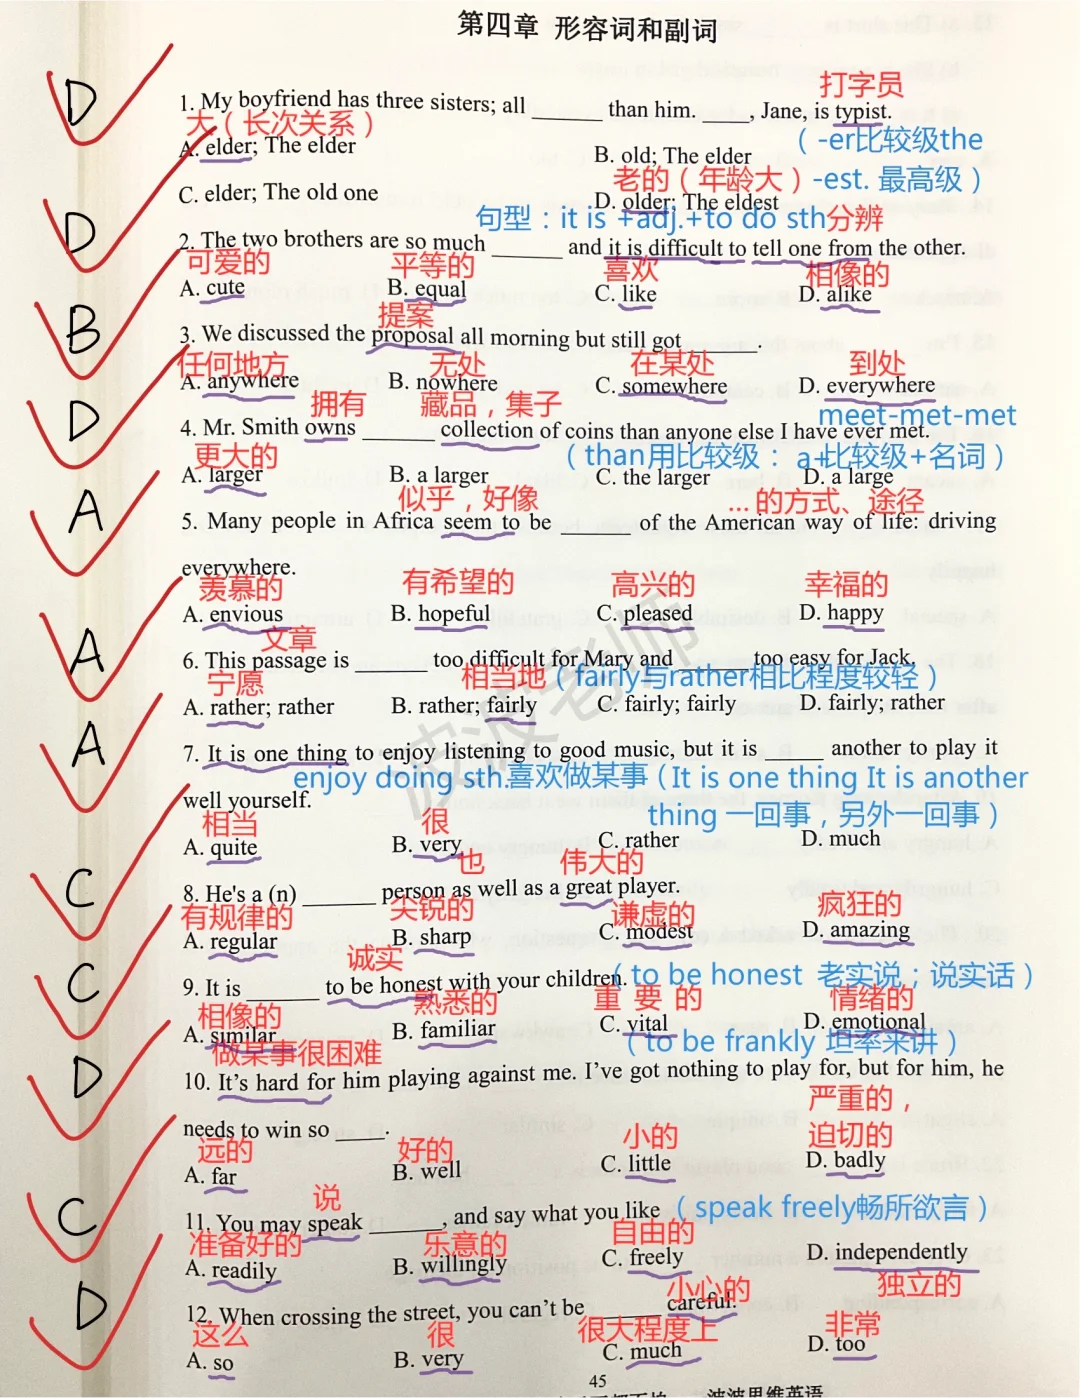 第四章 形容词和副词
打字员
D
1. My boyfriend has three sisters; all ______ than him. ____, Jane, is typist.
大（长次关系）
（ -er比较级the
A. elder; The elder
B. old; The elder
老的（年龄大）-est. 最高级）
C. elder; The old one
D. older; The eldest
句型：it is +adj.+to do sth分辨
D
2. The two brothers are so much ______ and it is difficult to tell one from the other.
可爱的 平等的 喜欢 相像的
A. cute B. equal C. like D. alike
提案
B
3. We discussed the proposal all morning but still got ______.
任何地方 无处 在某处 到处
A. anywhere B. nowhere C. somewhere D. everywhere
拥有 藏品，集子 meet-met-met
D
4. Mr. Smith owns ______ collection of coins than anyone else I have ever met.
更大的 （than用比较级： a+比较级+名词）
A. larger B. a larger C. the larger D. a large
似乎，好像 ... 的方式、途径
A
5. Many people in Africa seem to be ______ of the American way of life: driving
everywhere.
羡慕的 有希望的 高兴的 幸福的
A. envious B. hopeful C. pleased D. happy
文章
A
6. This passage is ______ too difficult for Mary and ____ too easy for Jack.
宁愿 相当地（fairly与rather相比程度较轻）
A. rather; rather B. rather; fairly C. fairly; fairly D. fairly; rather
A
7. It is one thing to enjoy listening to good music, but it is _____ another to play it
enjoy doing sth.喜欢做某事（It is one thing It is another
well yourself.
thing 一回事，另外一回事）
相当 很
A. quite B. very C. rather D. much
也 伟大的
C
8. He's a (n) ______ person as well as a great player.
有规律的 尖锐的 谦虚的 疯狂的
A. regular B. sharp C. modest D. amazing
诚实 （to be honest 老实说；说实话）
C
9. It is ______ to be honest with your children.
相像的 熟悉的 重 要 的 情绪的
A. similar B. familiar C. vital D. emotional
做某事很困难 （to be frankly 坦率来讲）
D
10. It’s hard for him playing against me. I’ve got nothing to play for, but for him, he
严重的，
needs to win so ____.
远的 好的 小的 迫切的
A. far B. well C. little D. badly
说
C
11. You may speak ______, and say what you like （speak freely畅所欲言）
准备好的 乐意的 自由的
A. readily B. willingly C. freely D. independently
小心的 独立的
D
12. When crossing the street, you can’t be ______ careful.
这么 很 很大程度上 非常
A. so B. very C. much D. too
45
波波思维英语
波波老师